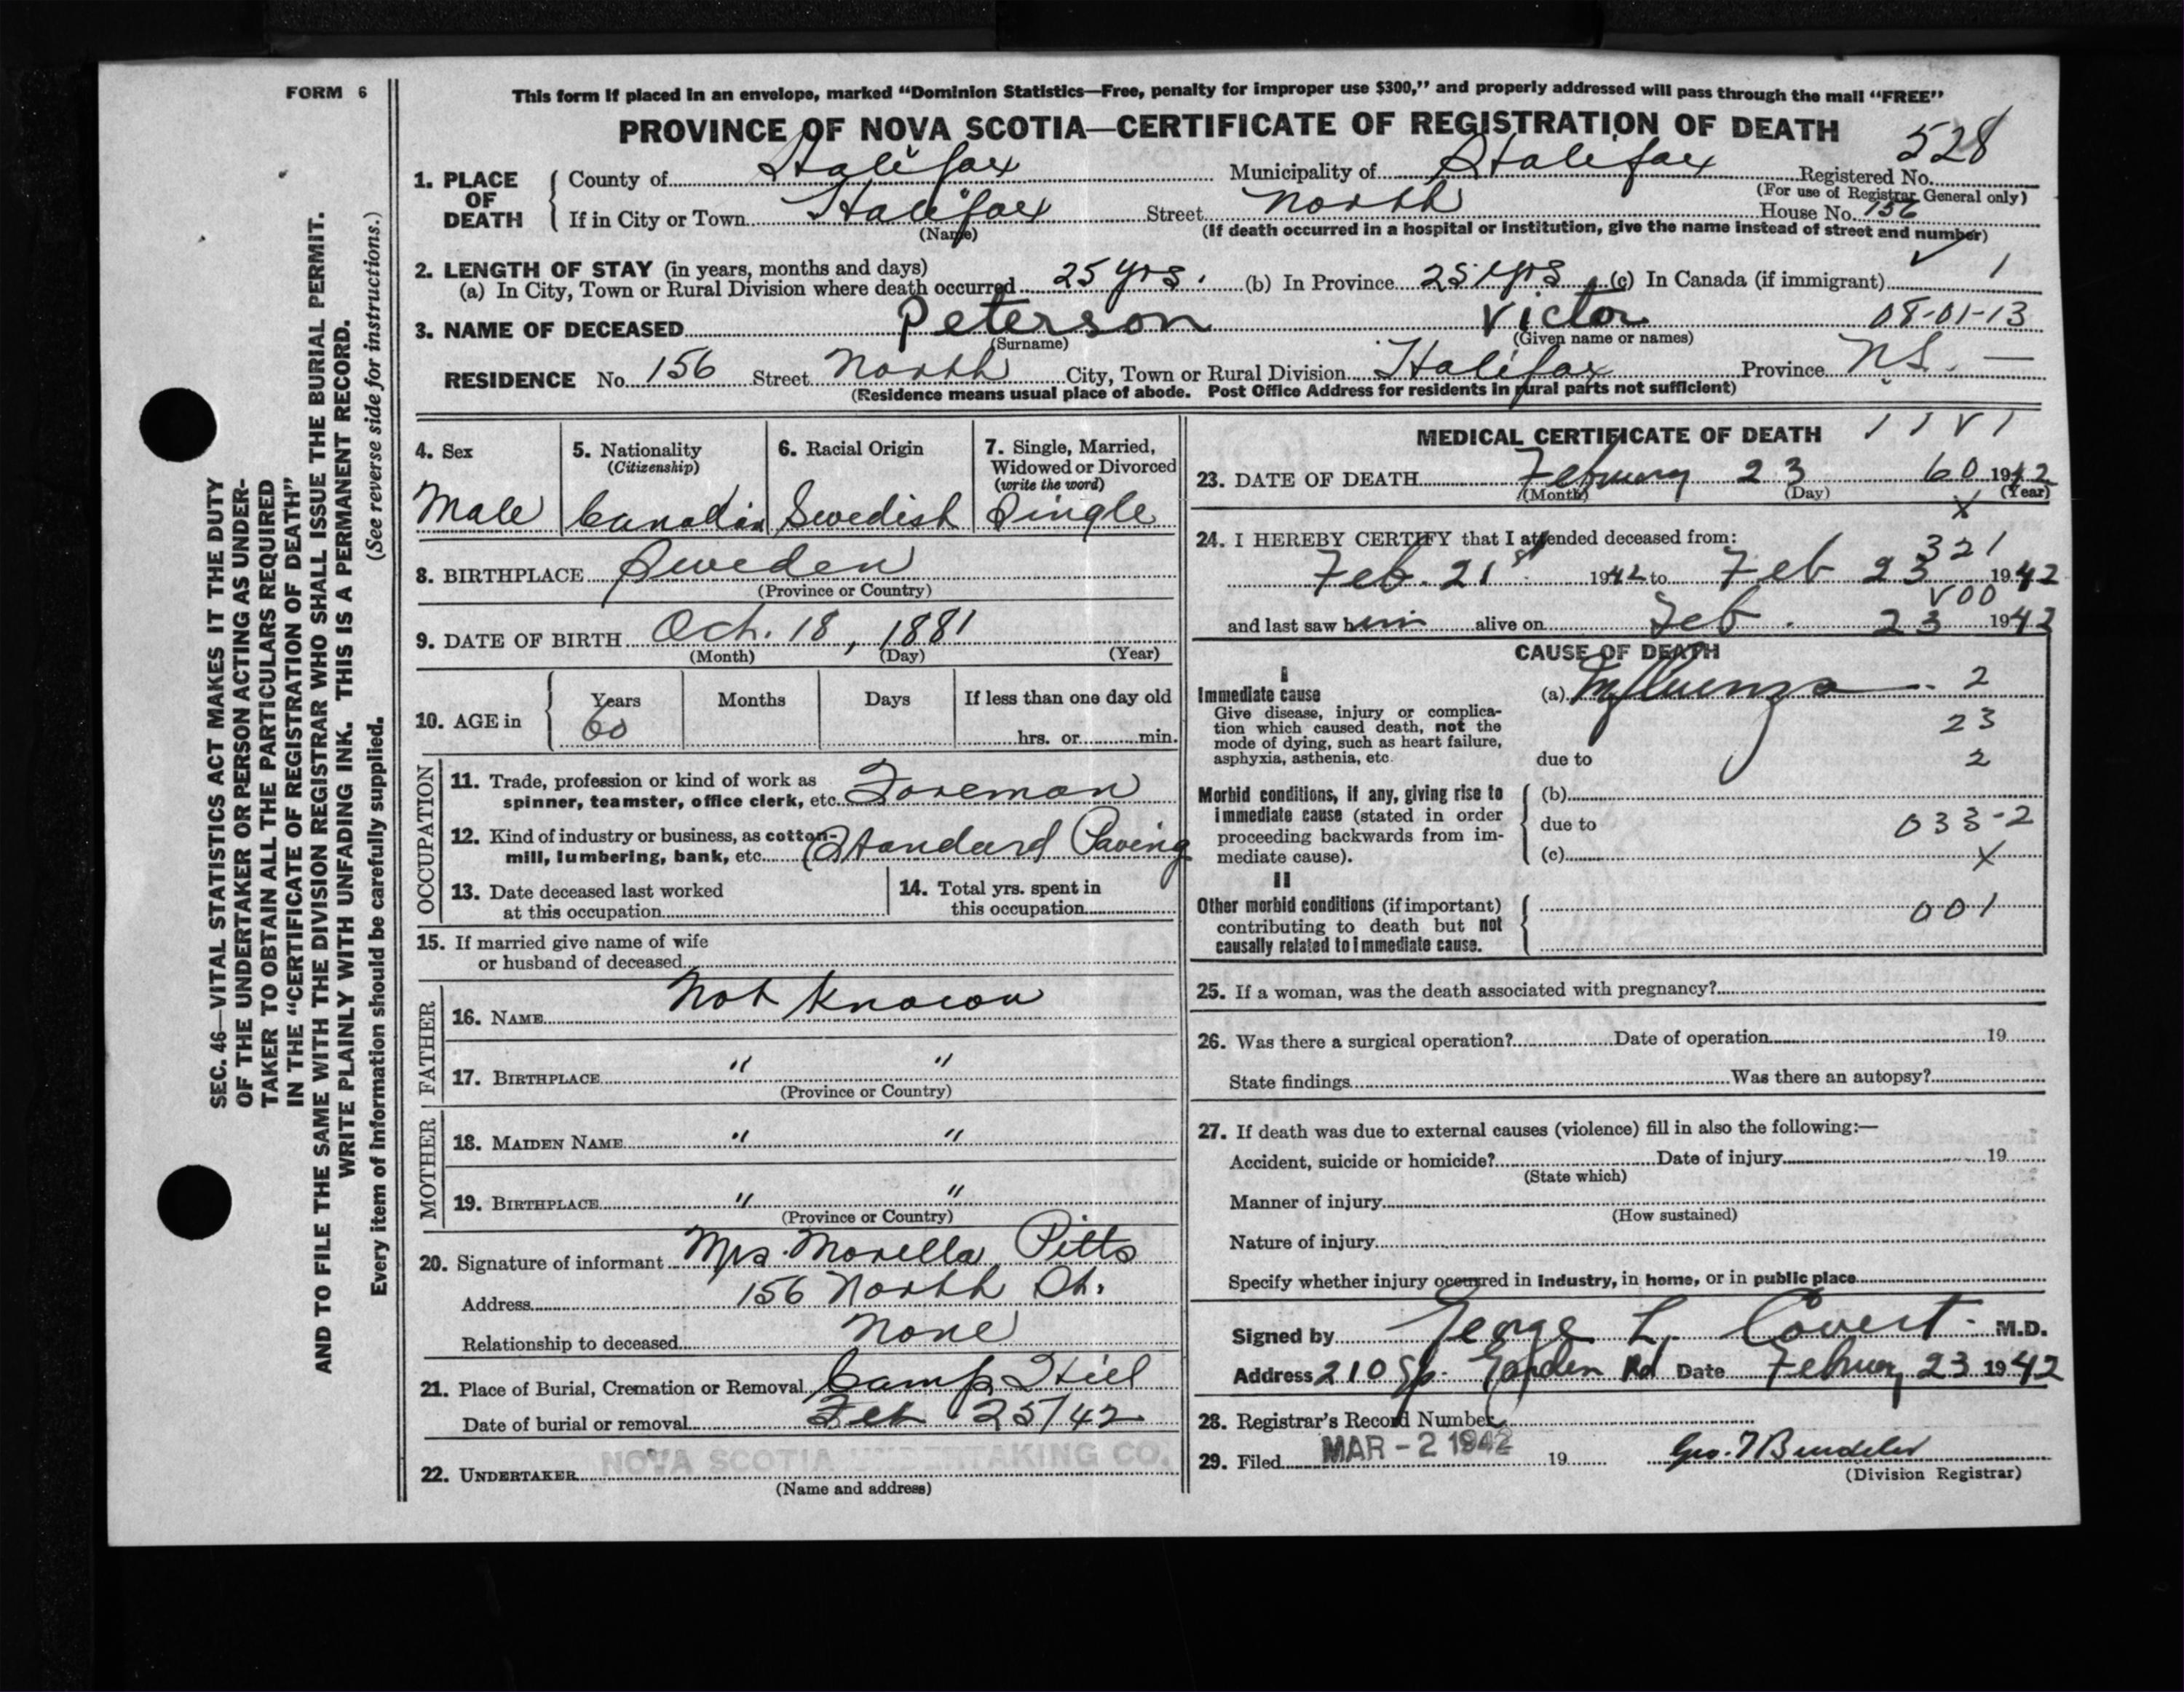 FORM 6
This form if placed in an envelope, marked “Dominion Statistics—Free, penalty for improper use $300,” and properly addressed will pass through the mail “FREE”
PROVINCE OF NOVA SCOTIA—CERTIFICATE OF REGISTRATION OF DEATH
528
1. PLACE OF DEATH
County of Halifax Municipality of Halifax Registered No.
(For use of Registrar General only)
If in City or Town Halifax Street North House No. 156
(Name) (If death occurred in a hospital or institution, give the name instead of street and number)
2. LENGTH OF STAY (in years, months and days)
(a) In City, Town or Rural Division where death occurred 25 yrs. (b) In Province 25 yrs (c) In Canada (if immigrant) 1
3. NAME OF DECEASED Peterson Victor 08-01-13
(Surname) (Given name or names)
RESIDENCE No. 156 Street North City, Town or Rural Division Halifax Province N.S. —
(Residence means usual place of abode. Post Office Address for residents in rural parts not sufficient)
4. Sex
Male
5. Nationality
(Citizenship)
Canadian
6. Racial Origin
Swedish
7. Single, Married,
Widowed or Divorced
(write the word)
Single
8. BIRTHPLACE Sweden
(Province or Country)
9. DATE OF BIRTH Oct. 18, 1881
(Month) (Day) (Year)
10. AGE in
Years Months Days If less than one day old
60 hrs. or min.
OCCUPATION
11. Trade, profession or kind of work as
spinner, teamster, office clerk, etc. Foreman
12. Kind of industry or business, as cotton-
mill, lumbering, bank, etc. (Standard Paving
13. Date deceased last worked
at this occupation
14. Total yrs. spent in
this occupation
15. If married give name of wife
or husband of deceased
FATHER
16. NAME Not Known
17. BIRTHPLACE " "
(Province or Country)
MOTHER
18. MAIDEN NAME " "
19. BIRTHPLACE " "
(Province or Country)
20. Signature of informant Mrs. Morella Pitts
Address 156 North St.
Relationship to deceased None
21. Place of Burial, Cremation or Removal Camp Hill
Date of burial or removal Feb 25/42
22. UNDERTAKER NOVA SCOTIA UNDERTAKING CO.
(Name and address)
MEDICAL CERTIFICATE OF DEATH 1 1 V 1
23. DATE OF DEATH February 23 60 1942
(Month) (Day) (Year)
X
24. I HEREBY CERTIFY that I attended deceased from:
321
Feb. 21st 1942 to Feb 23 1942
V00
and last saw him alive on Feb. 23 1942
CAUSE OF DEATH
I
Immediate cause
Give disease, injury or complica-
tion which caused death, not the
mode of dying, such as heart failure,
asphyxia, asthenia, etc.
(a) Influenza 2
23
due to 2
Morbid conditions, if any, giving rise to
immediate cause (stated in order
proceeding backwards from im-
mediate cause).
(b)
due to 033-2
(c) X
II
Other morbid conditions (if important)
contributing to death but not
causally related to immediate cause.
001
25. If a woman, was the death associated with pregnancy?
26. Was there a surgical operation? Date of operation 19
State findings Was there an autopsy?
27. If death was due to external causes (violence) fill in also the following:—
Accident, suicide or homicide? Date of injury 19
(State which)
Manner of injury
(How sustained)
Nature of injury
Specify whether injury occurred in industry, in home, or in public place
Signed by George L. Covert. M.D.
Address 210 Sp. Garden Rd Date February 23 1942
28. Registrar's Record Number
29. Filed MAR - 2 1942 19 Geo. T
(Division Registrar)
SEC. 46—VITAL STATISTICS ACT MAKES IT THE DUTY
OF THE UNDERTAKER OR PERSON ACTING AS UNDER-
TAKER TO OBTAIN ALL THE PARTICULARS REQUIRED
IN THE “CERTIFICATE OF REGISTRATION OF DEATH”
AND TO FILE THE SAME WITH THE DIVISION REGISTRAR WHO SHALL ISSUE THE BURIAL PERMIT.
WRITE PLAINLY WITH UNFADING INK. THIS IS A PERMANENT RECORD.
Every item of information should be carefully supplied. (See reverse side for instructions.)